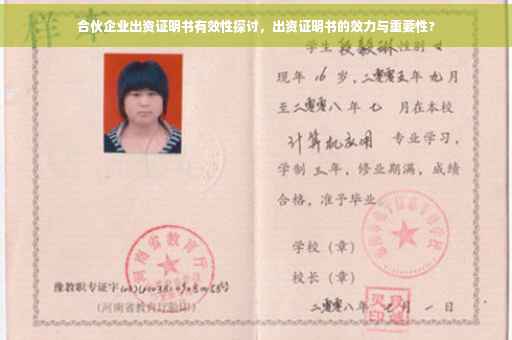 合伙企业出资证明书有效性探讨，出资证明书的效力与重要性？
样本
学生 段毅琳 性别 女
现年 16 岁，二零零五年 九月
至二零零八年 七 月在本校
计算机应用 专业学习，
学制 三 年，修业期满，成绩
合格，准予毕业
学校（章）
校长（章）
二零零八年 七 月 一 日
河南省教育厅
豫教职专证字
（河南省教育厅验印）